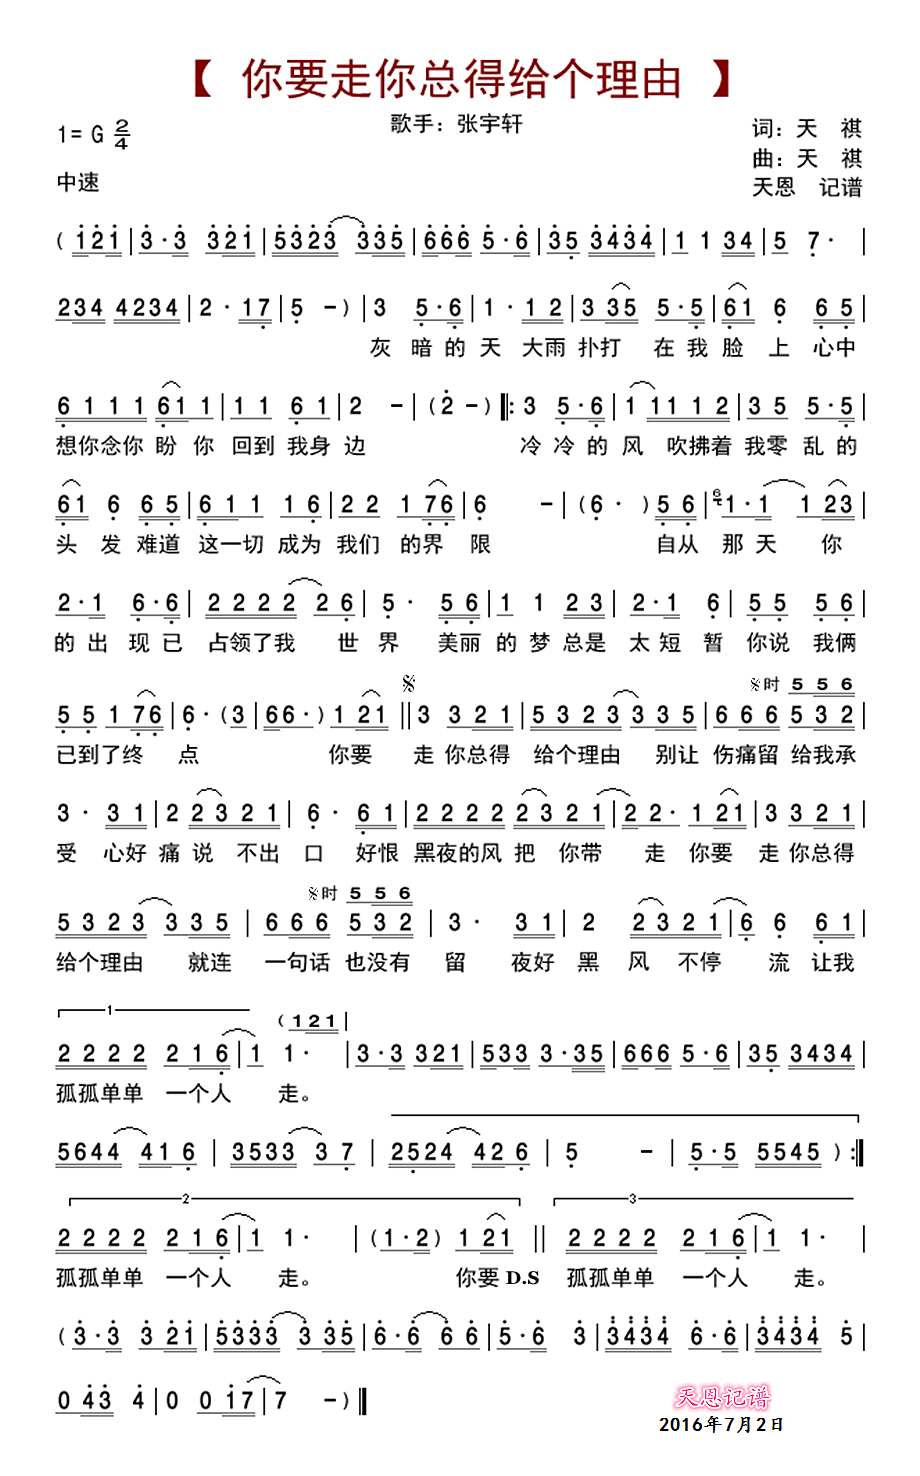 【 你要走你总得给个理由 】
1= G 2/4
歌手：张宇轩
词：天 祺
曲：天 祺
中速
天恩 记谱
( 1 2 1 | 3 · 3 3 2 1 | 5 3 2 3 3 3 5 | 6 6 6 5 · 6 | 3 5 3 4 3 4 | 1 1 3 4 | 5 7 · |
2 3 4 4 2 3 4 | 2 · 1 7 | 5 – ) | 3 5 · 6 | 1 · 1 2 | 3 3 5 5 · 5 | 6 1 6 6 5 |
灰 暗 的 天 大雨 扑打 在 我 脸 上 心中
6 1 1 1 6 1 1 | 1 1 6 1 | 2 – | ( 2 – ) ‖: 3 5 · 6 | 1 1 1 1 2 | 3 5 5 · 5 |
想你念你 盼 你 回到 我身 边 冷 冷 的 风 吹拂着 我零 乱 的
6 1 6 6 5 | 6 1 1 1 6 | 2 2 1 7 6 | 6 – | ( 6 · ) 5 6 | 6 1 · 1 1 2 3 |
头 发 难道 这一切 成为 我们 的界 限 自从 那 天 你
2 · 1 6 · 6 | 2 2 2 2 2 6 | 5 · 5 6 | 1 1 2 3 | 2 · 1 6 | 5 5 5 6 |
的 出 现 已 占领了我 世 界 美丽 的 梦 总是 太 短 暂 你说 我俩
𝄋 𝄋时 5 5 6
5 5 1 7 6 | 6 · ( 3 | 6 6 · ) 1 2 1 ‖ 3 3 2 1 | 5 3 2 3 3 3 5 | 6 6 6 5 3 2 |
已到了终 点 你要 走 你总得 给个理由 别让 伤痛留 给我承
3 · 3 1 | 2 2 3 2 1 | 6 · 6 1 | 2 2 2 2 2 3 2 1 | 2 2 · 1 2 1 | 3 3 2 1 |
受 心好 痛 说 不出 口 好恨 黑夜的风 把 你带 走 你要 走 你总得
𝄋时 5 5 6
5 3 2 3 3 3 5 | 6 6 6 5 3 2 | 3 · 3 1 | 2 2 3 2 1 | 6 6 6 1 |
给个理由 就连 一句话 也没有 留 夜好 黑 风 不停 流 让我
1 ( 1 2 1 |
2 2 2 2 2 1 6 | 1 1 · | 3 · 3 3 2 1 | 5 3 3 3 · 3 5 | 6 6 6 5 · 6 | 3 5 3 4 3 4 |
孤孤单单 一个人 走。
5 6 4 4 4 1 6 | 3 5 3 3 3 7 | 2 5 2 4 4 2 6 | 5 – | 5 · 5 5 5 4 5 ) :‖
2 3
2 2 2 2 2 1 6 | 1 1 · | ( 1 · 2 ) 1 2 1 ‖ 2 2 2 2 2 1 6 | 1 1 · |
孤孤单单 一个人 走。 你要 D.S 孤孤单单 一个人 走。
( 3 · 3 3 2 1 | 5 3 3 3 3 3 5 | 6 · 6 6 6 | 5 · 6 3 | 3 4 3 4 6 · 6 | 3 4 3 4 5 |
0 4 3 4 | 0 0 1 7 | 7 – ) ‖
天恩记谱
2016年7月2日